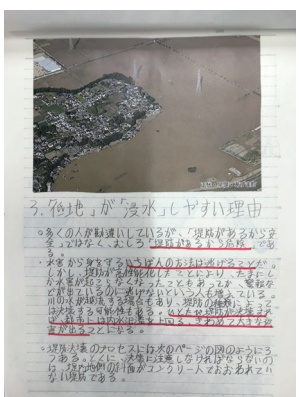 3.「低地」が「浸水」しやすい理由
。多くの人が勘違いしているが、「堤防があるから安
全」ではなく、むしろ「堤防があるから危険」であ
る。
。水害から身を守るいちばんの方法は逃げることだ。
しかし、堤防が高性能化したことにより、たまにし
か水害が起こらなくなったこともあってか、警報な
どが出ているのに逃げないという人が増えている。
川の水が越流する場合もあり、堤防の種類によって
は決壊する可能性もある。ひとたび堤防が決壊すれ
ば、
きわめて大きな被
害が出ることになる。
。堤防決壊のプロセスには次のページの図のようにみ
つある。とくに、決壊に注意しなければならないの
は、堤内地側の斜面がコンクリートでおおわれてい
ない堤防である。